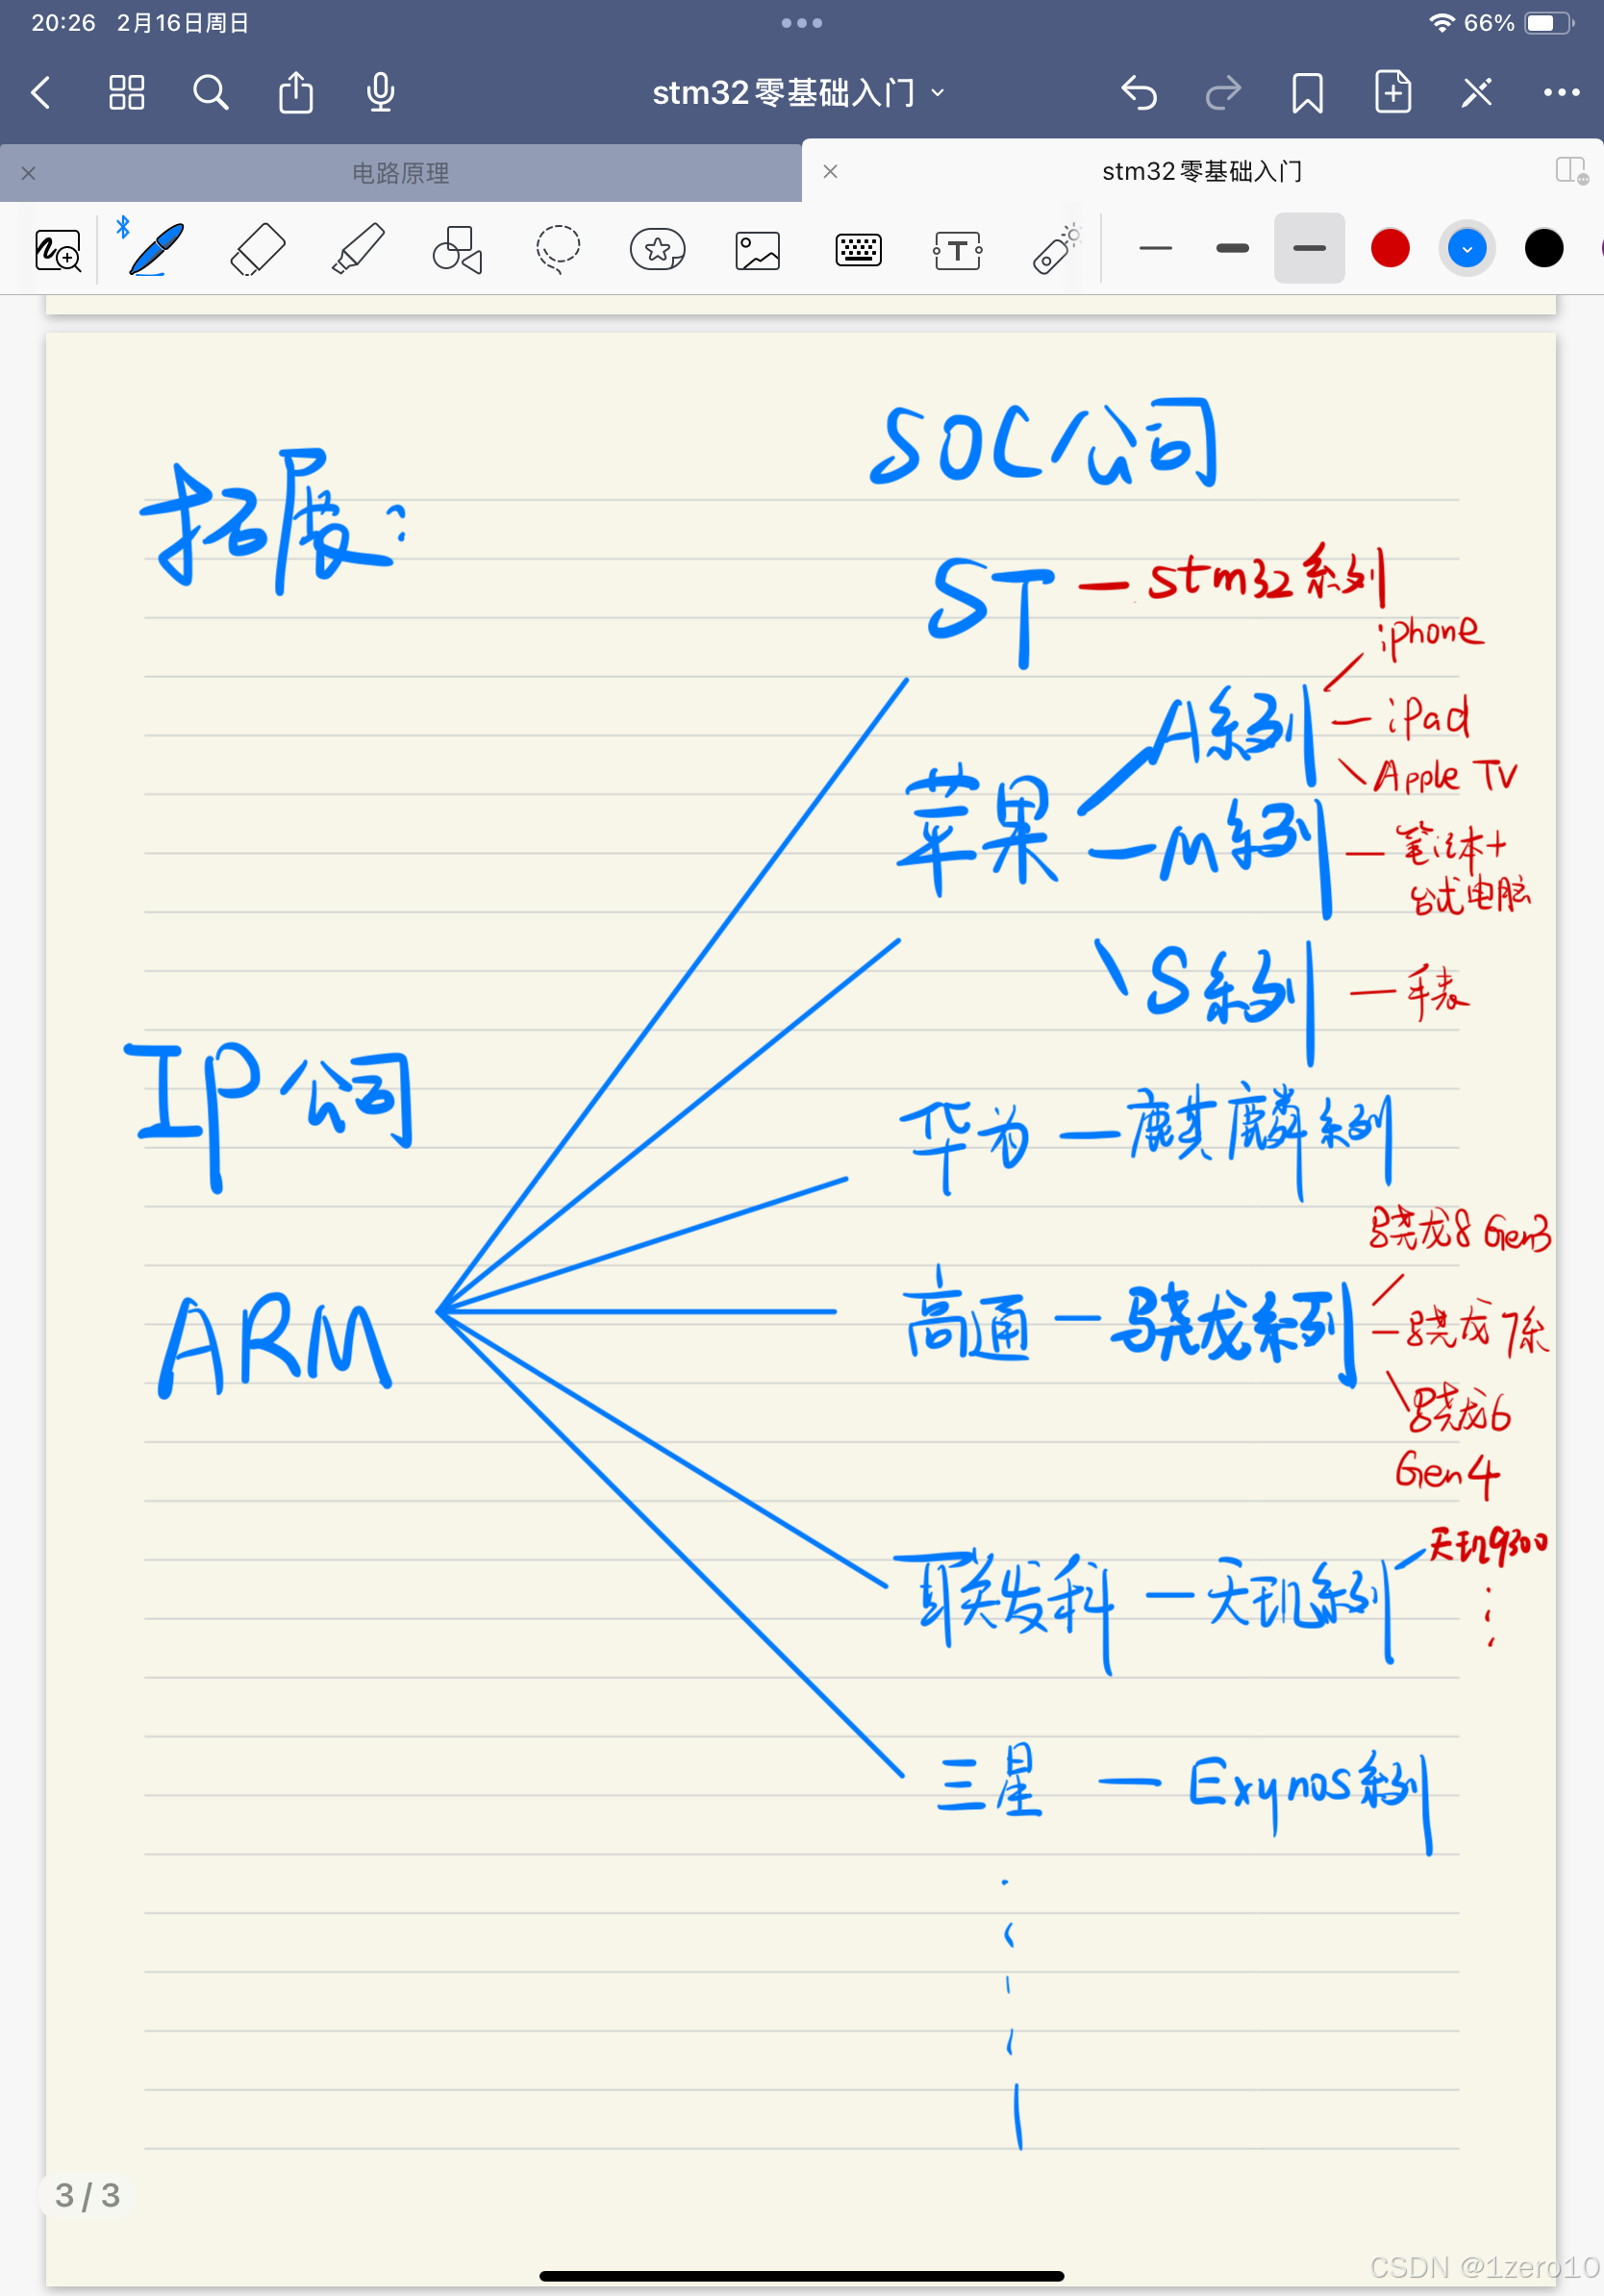 20:26 2月16日周日
66%
stm32零基础入门
电路原理
stm32零基础入门
T
拓展:
SOC公司
ST — stm32系列
苹果
A系列
iphone
iPad
Apple TV
M系列 — 笔记本+
台式电脑
S系列 — 手表
IP公司
ARM
华为 — 麒麟系列
高通 — 骁龙系列
骁龙8 Gen3
骁龙7系
骁龙6
Gen4
联发科 — 天玑系列
天玑9300
三星 — Exynos系列
3 / 3
CSDN @1zero10